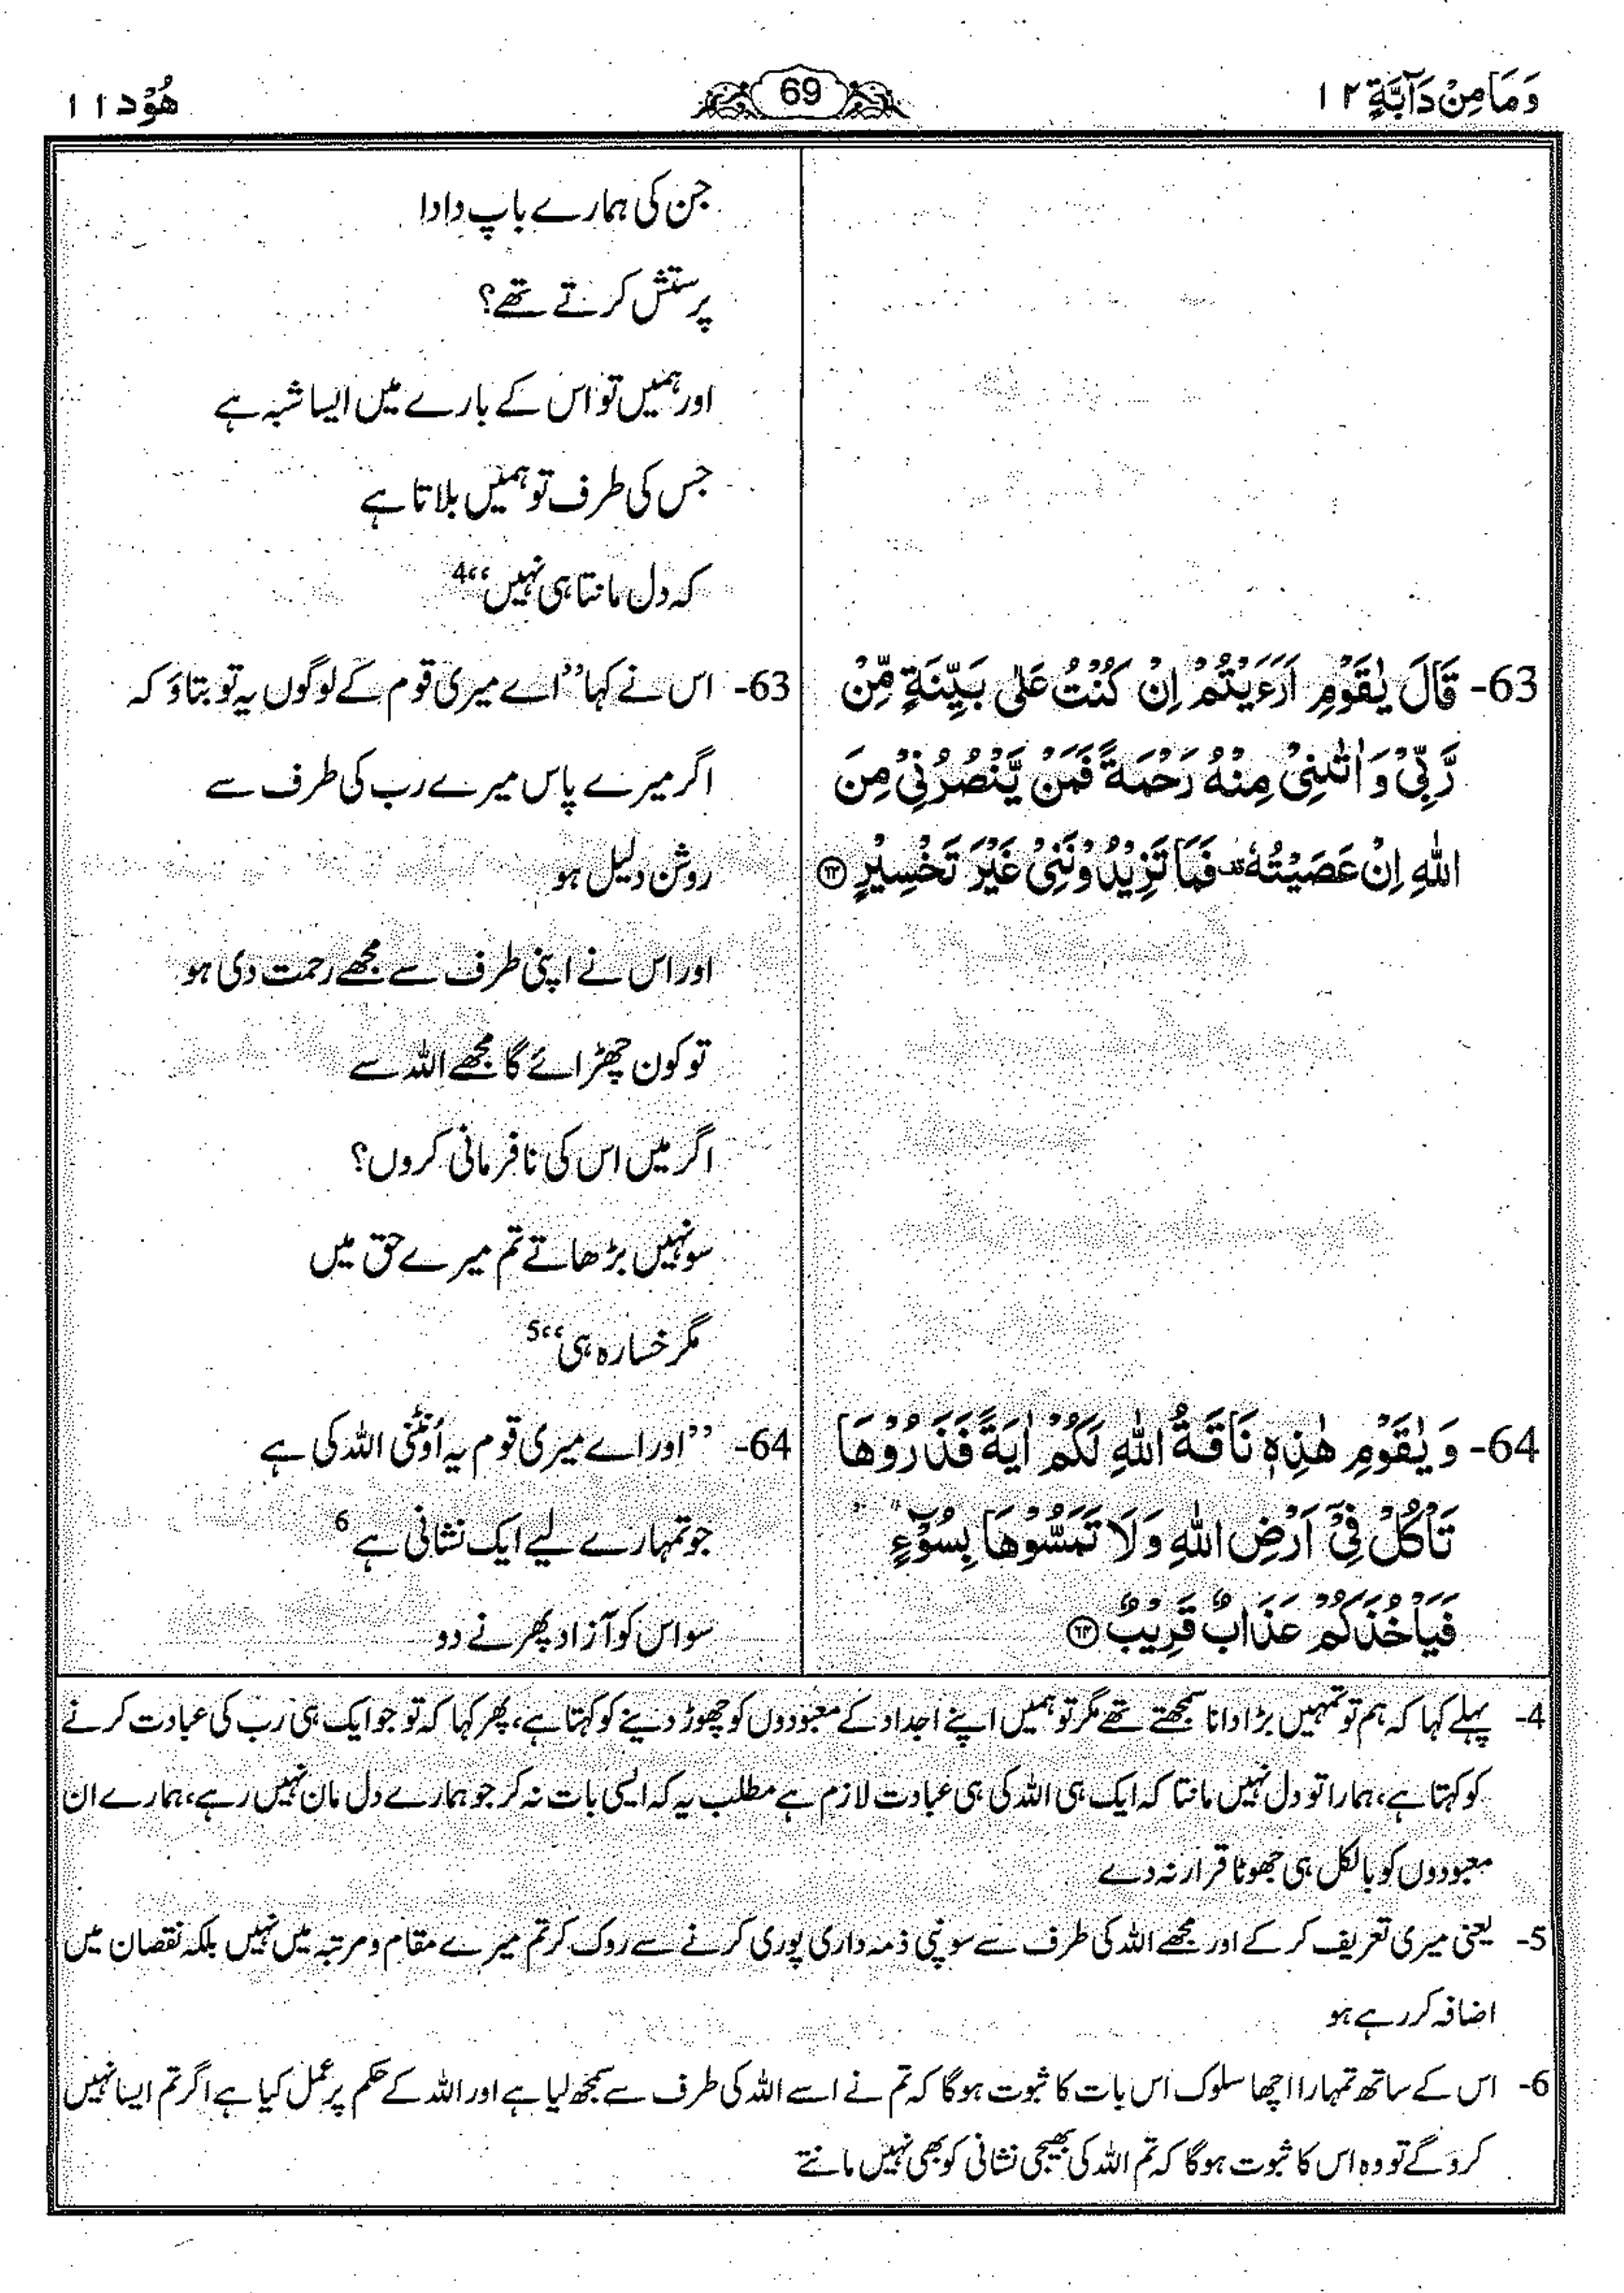 وَمَا مِنْ دَآبَّةٍ ١٢
69
هُوْد ١١
جن کی ہمارے باپ دادا
پرستش کرتے تھے؟
اور ہمیں تو اس کے بارے میں ایسا شبہ ہے
جس کی طرف تو ہمیں بلاتا ہے
کہ دل مانتا ہی نہیں“4
63- قَالَ يٰقَوْمِ اَرَءَيْتُمْ اِنْ كُنْتُ عَلٰى بَيِّنَةٍ مِّنْ
رَّبِّيْ وَاٰتٰىنِيْ مِنْهُ رَحْمَةً فَمَنْ يَّنْصُرُنِيْ مِنَ
اللّٰهِ اِنْ عَصَيْتُهٗ ۫ فَمَا تَزِيْدُوْنَنِيْ غَيْرَ تَخْسِيْرٍ ﴿٦٣﴾
63- اس نے کہا ”اے میری قوم کے لوگوں یہ تو بتاؤ کہ
اگر میرے پاس میرے رب کی طرف سے
روشن دلیل ہو
اور اس نے اپنی طرف سے مجھے رحمت دی ہو
تو کون چھڑائے گا مجھے اللہ سے
اگر میں اس کی نافرمانی کروں؟
سو نہیں بڑھاتے تم میرے حق میں
مگر خسارہ ہی“5
64- وَ يٰقَوْمِ هٰذِهٖ نَاقَةُ اللّٰهِ لَكُمْ اٰيَةً فَذَرُوْهَا
تَاْكُلْ فِيْٓ اَرْضِ اللّٰهِ وَلَا تَمَسُّوْهَا بِسُوْٓءٍ
فَيَاْخُذَكُمْ عَذَابٌ قَرِيْبٌ ﴿٦٤﴾
64- ”اور اے میری قوم یہ اُونٹنی اللہ کی ہے
جو تمہارے لیے ایک نشانی ہے6
سو اس کو آزاد پھرنے دو
4- پہلے کہا کہ ہم تو تمہیں بڑا دانا سمجھتے تھے مگر تو ہمیں اپنے اجداد کے معبودوں کو چھوڑ دینے کو کہتا ہے، پھر کہا کہ تو جو ایک ہی رب کی عبادت کرنے
کو کہتا ہے، ہمارا تو دل نہیں مانتا کہ ایک ہی اللہ کی ہی عبادت لازم ہے مطلب یہ کہ ایسی بات نہ کر جو ہمارے دل مان نہیں رہے، ہمارے ان
معبودوں کو بالکل ہی جھوٹا قرار نہ دے
5- یعنی میری تعریف کر کے اور مجھے اللہ کی طرف سے سونپی ذمہ داری پوری کرنے سے روک کر تم میرے مقام و مرتبہ میں نہیں بلکہ نقصان میں
اضافہ کر رہے ہو
6- اس کے ساتھ تمہارا اچھا سلوک اس بات کا ثبوت ہوگا کہ تم نے اسے اللہ کی طرف سے سمجھ لیا ہے اور اللہ کے حکم پر عمل کیا ہے اگر تم ایسا نہیں
کرو گے تو وہ اس کا ثبوت ہوگا کہ تم اللہ کی بھیجی نشانی کو بھی نہیں مانتے